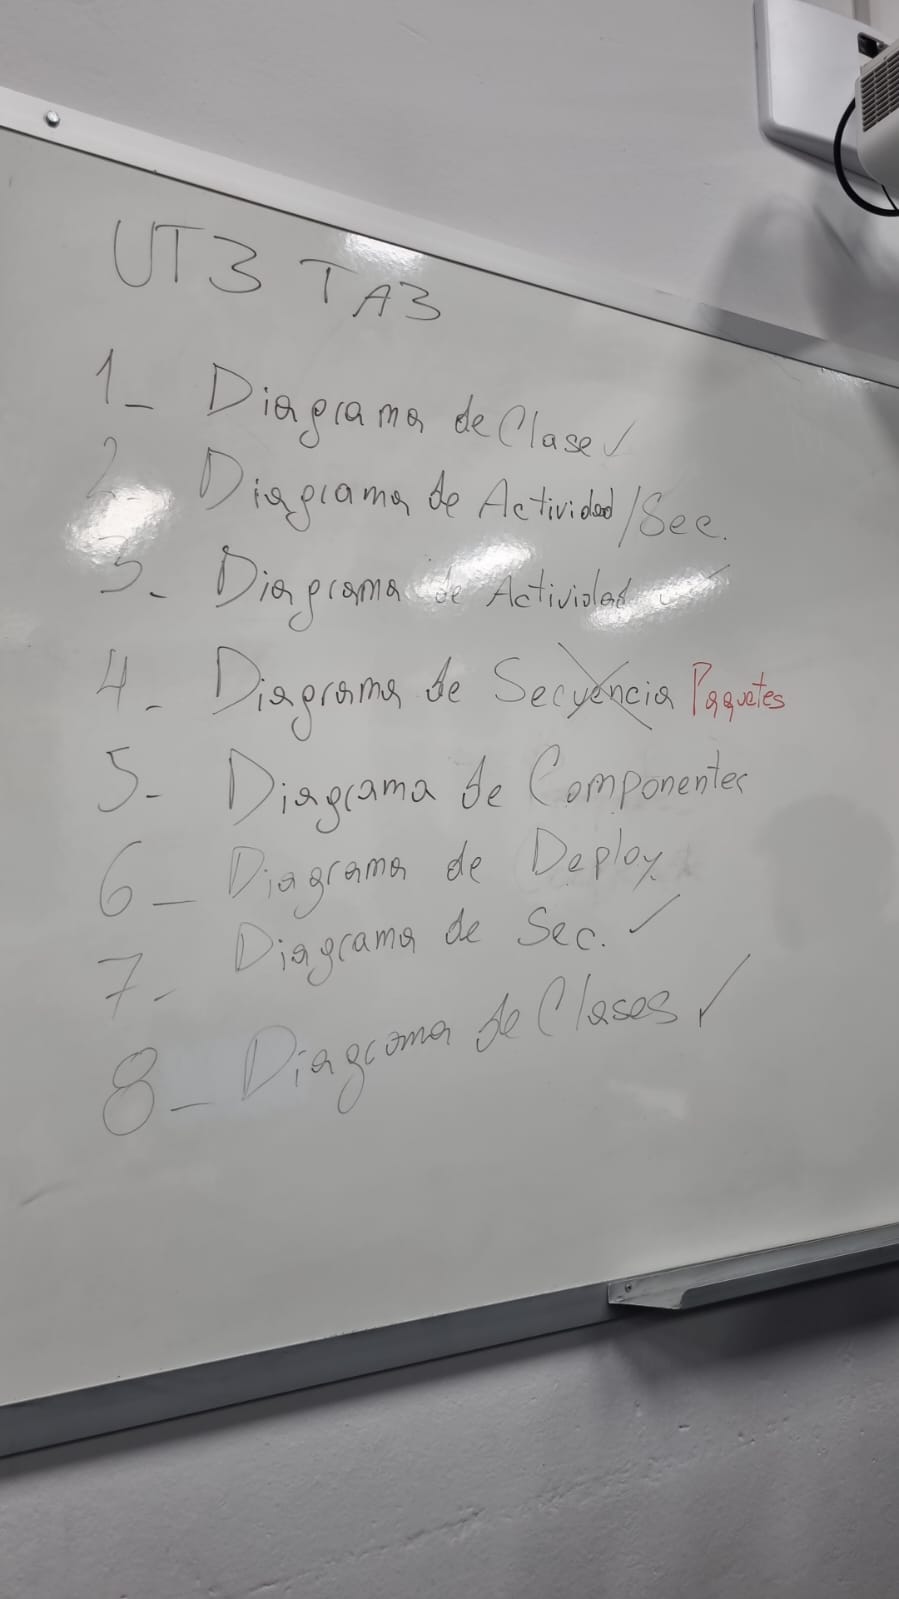 UT3 TA3
1_ Diagrama de Clase ✓
2_ Diagrama de Actividad/Sec.
3_ Diagrama de Actividad ✓
4_ Diagrama de Secuencia Paquetes
5_ Diagrama de Componentes
6_ Diagrama de Deploy.
7_ Diagrama de Sec. ✓
8_ Diagrama de Clases ✓